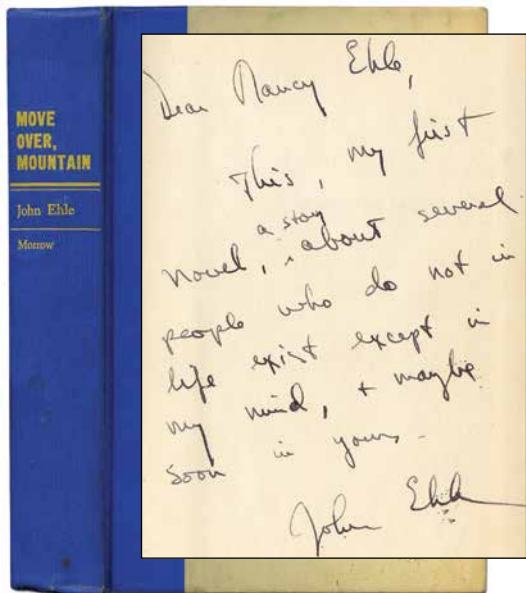 MOVE
OVER,
MOUNTAIN
John Ehle
Morrow
Dear Nancy Ehle,
This, my first
a story
novel, ^ about several
people who do not in
life exist except in
my mind, + maybe
soon in yours –
John Ehle